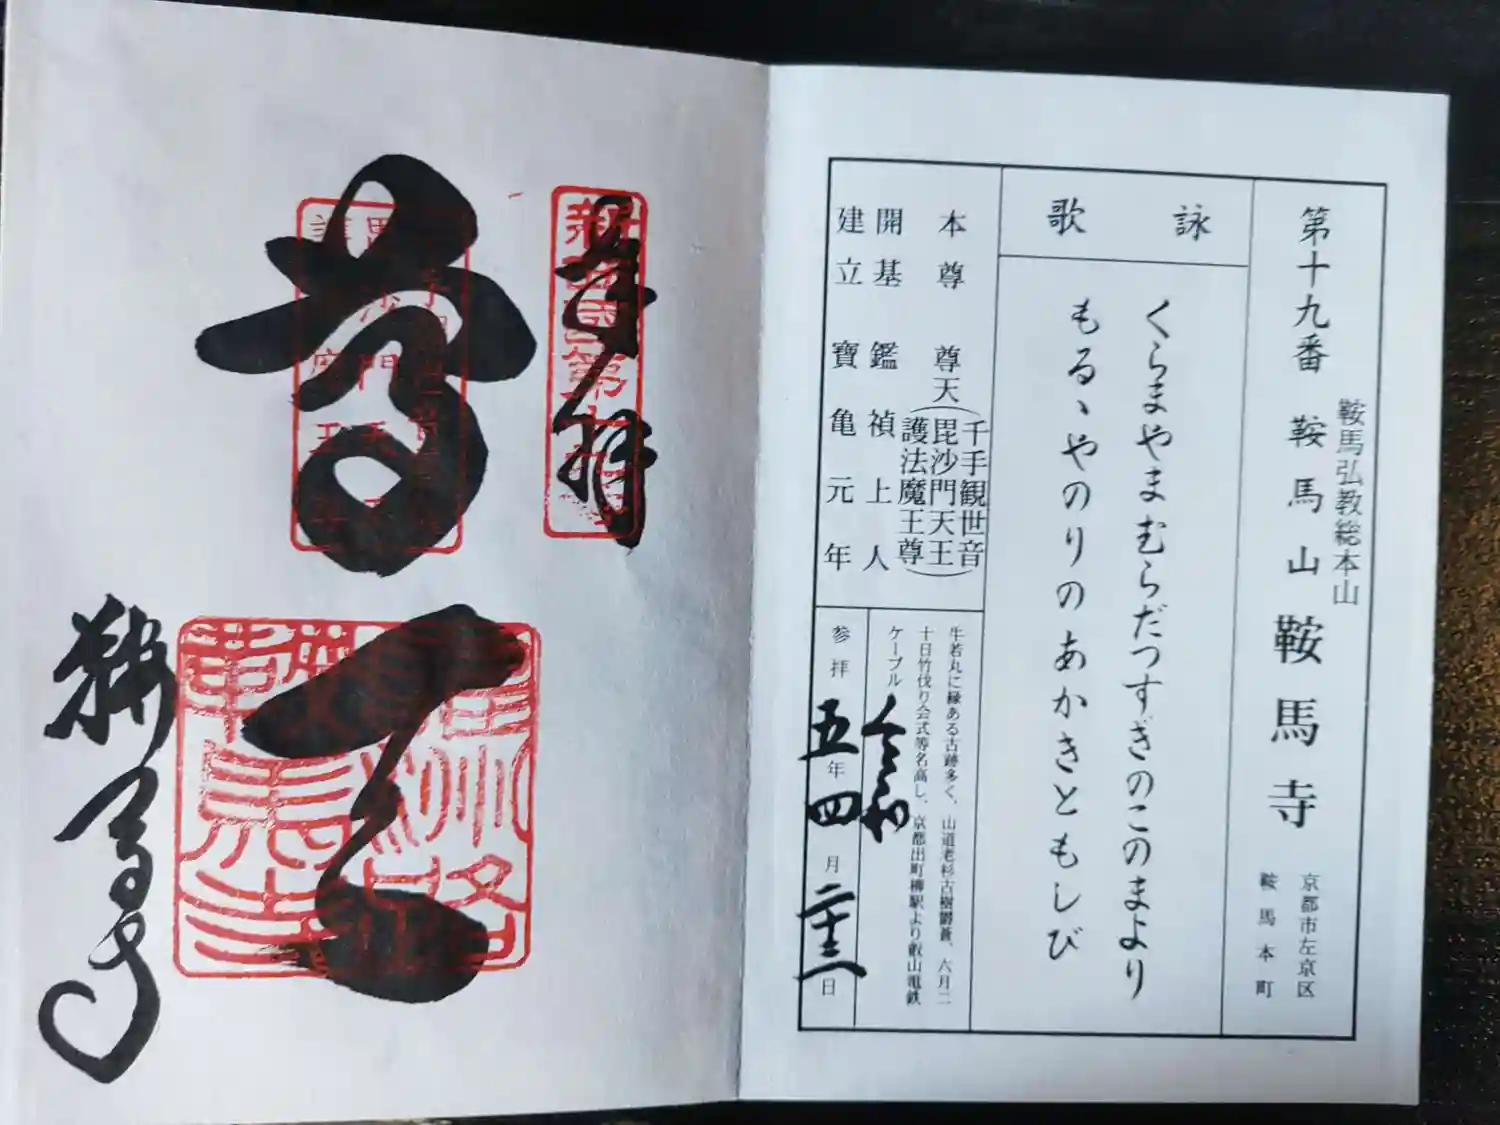 第十九番 鞍馬山 鞍馬寺
鞍馬弘教総本山
京都市左京区
鞍馬本町
詠歌
くらまやまむらだつすぎのこのまより
もるゝやのりのあかきともしび
本尊 尊天
千手観世音
毘沙門天王
護法魔王尊
開基 鑑禎上人
建立 寶亀元年
牛若丸に縁ある古跡多く、山道老杉古樹欝蒼、六月二
十日竹伐り会式等名高し、京都出町柳駅より叡山電鉄
ケーブル
参拝 令和五年四月二十三日
奉拝
尊天
鞍馬寺